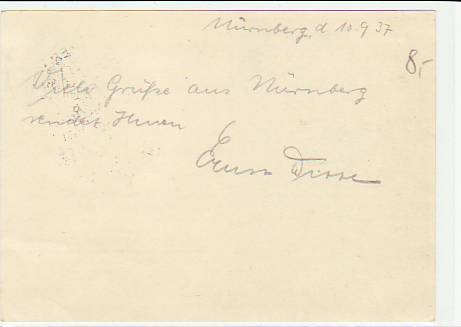 Nürnberg, d 10.9 37
8,-
Viele Grüße aus Nürnberg
sendet Ihnen
Ernst